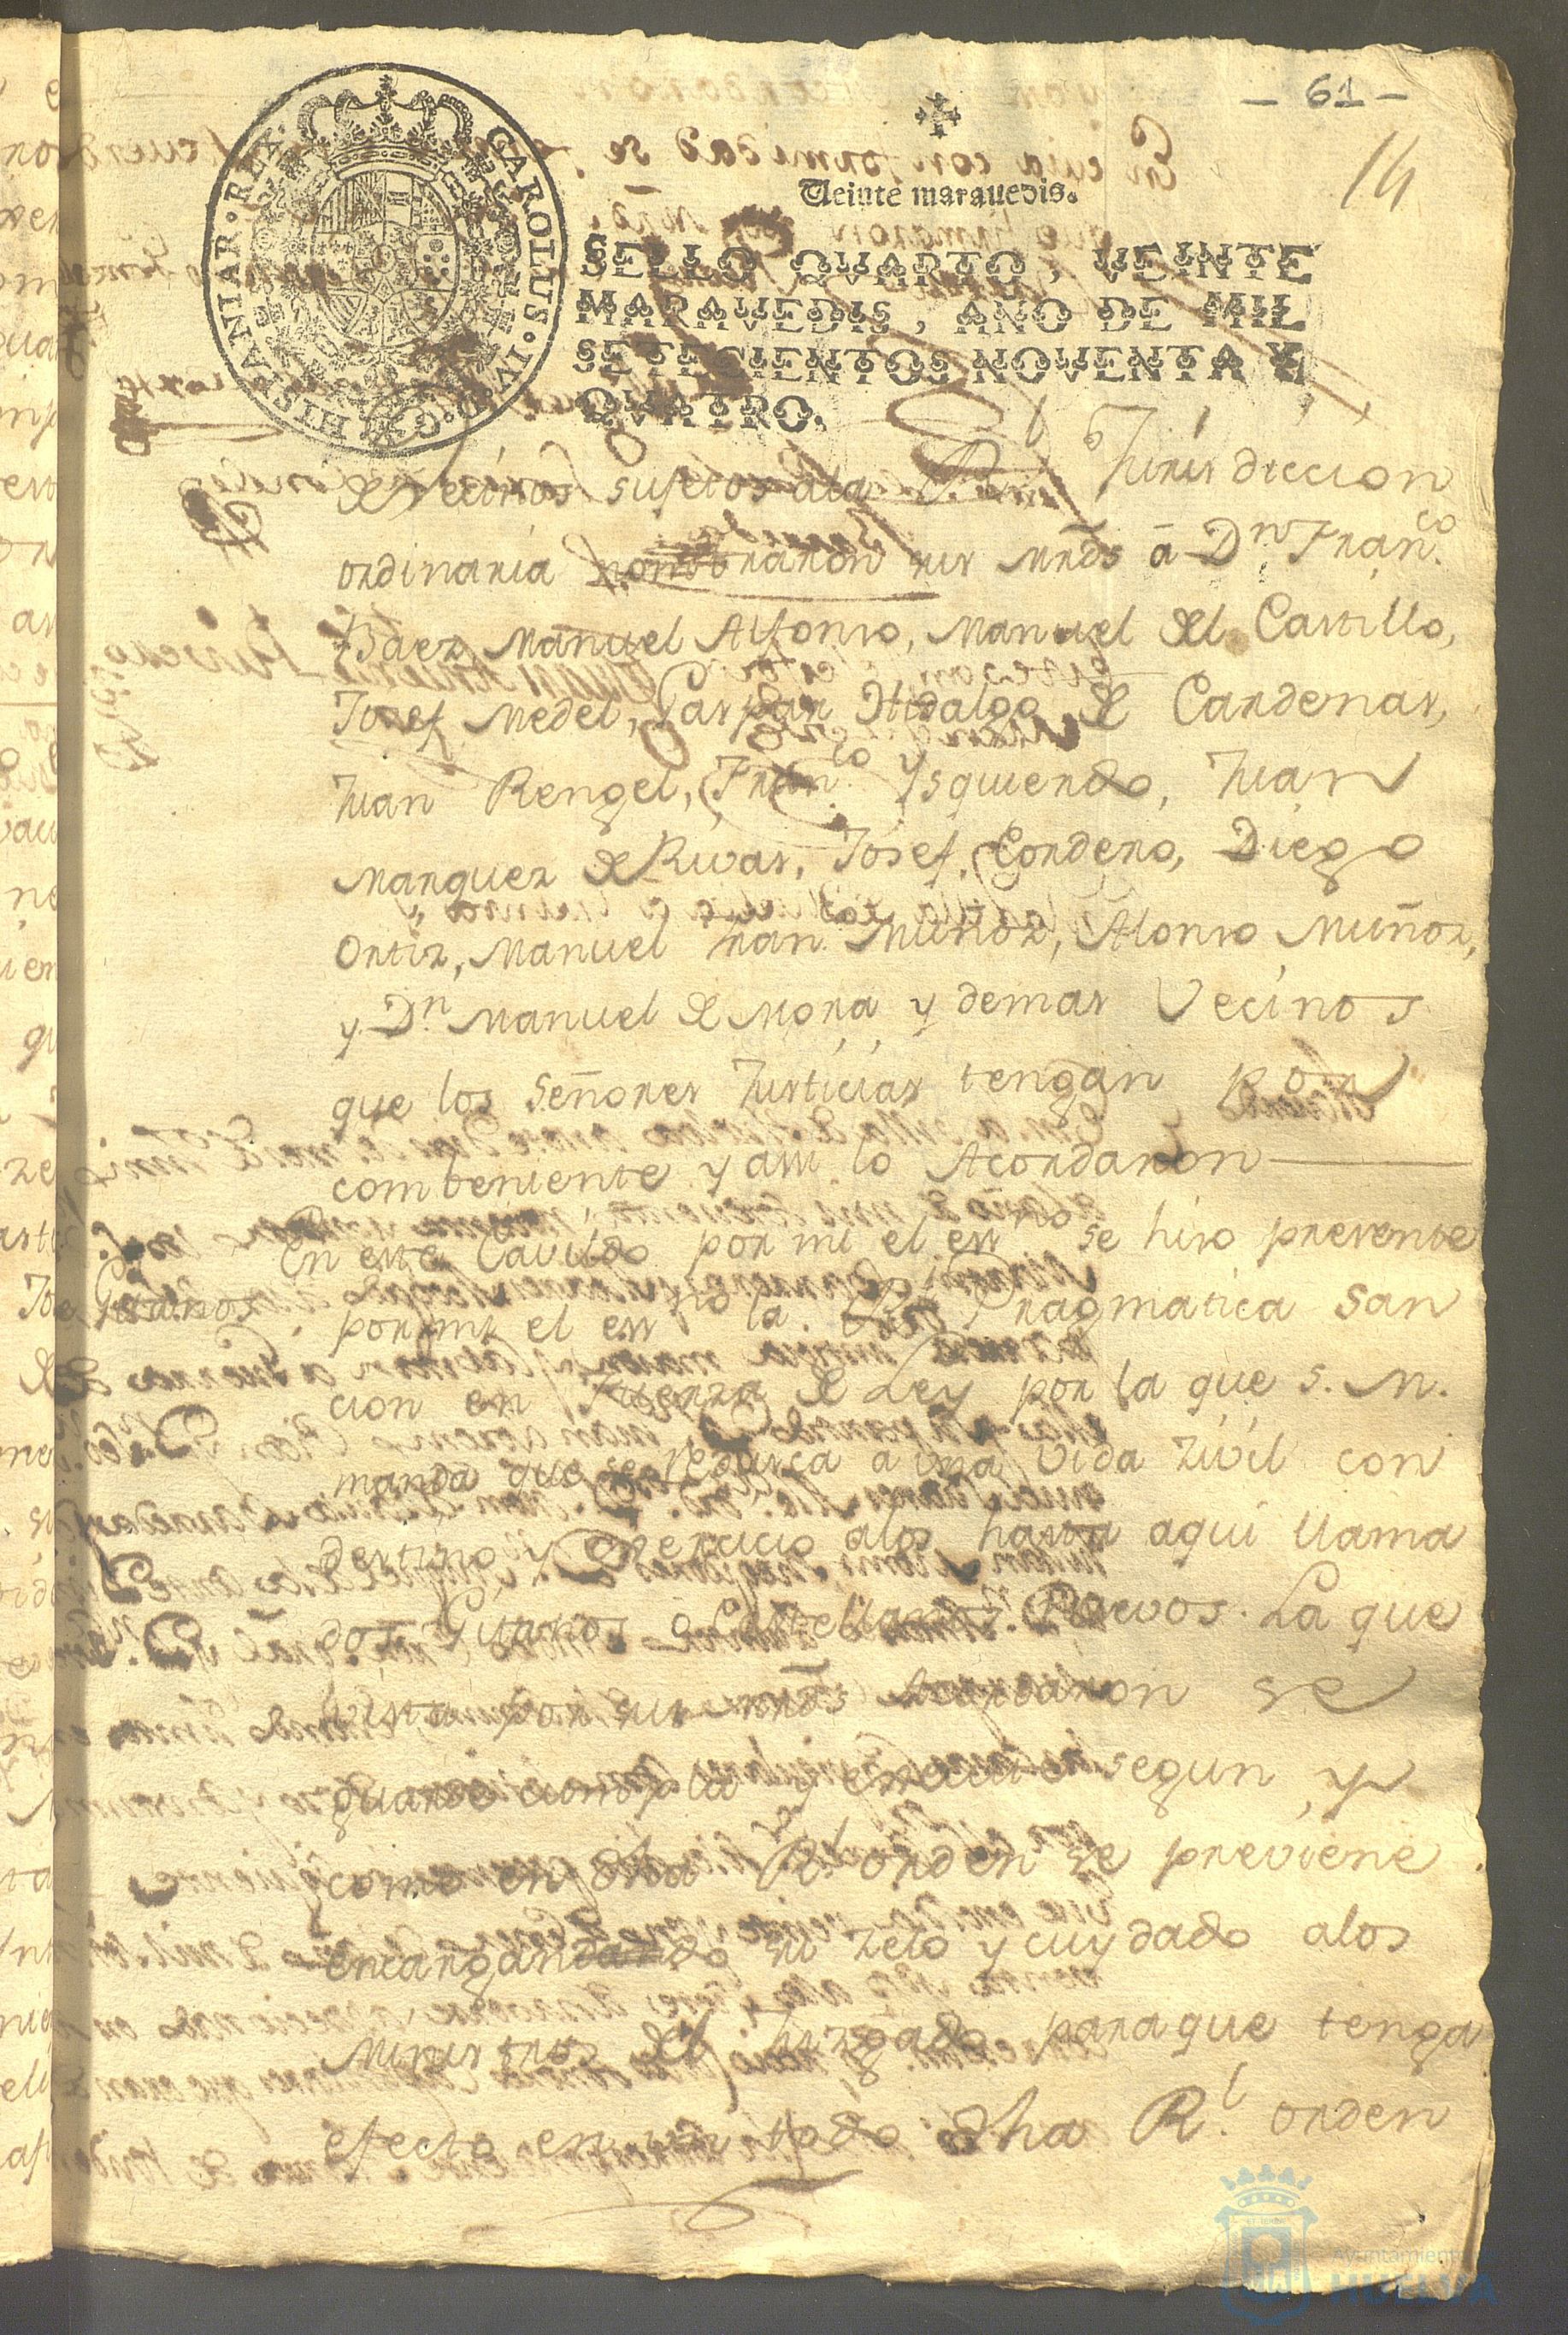 - 61 -
14
CAROLUS · IV · D · G · HISPANIAR · REX ·
Veinte marauedis.
SELLO QVARTO, VEINTE
MARAVEDIS, AÑO DE MIL
SETECIENTOS NOVENTA Y
QVATRO.
de vecinos sujetos ala Rl Jurisdiccion
ordinaria nombraron sus mrds â Dn Franco
Baez, Manuel Alfonso, Manuel del Castillo,
Josef Medel, Gaspar Hidalgo de Cardenas,
Juan Rengel, Franco Ysquierdo, Juan
Marquez de Rivas, Josef Cordero, Diego
Ortiz, Manuel Muñoz, Alonso Muñoz,
y Dn Manuel de Mora y demas Vecinos
que los Señores Justicias tengan por
combeniente y assi lo Acordaron
En este Cavildo por mi el essno se hiso presente
Gitanos
por mi el essno la Rl Pragmatica San
cion en fuerza de Ley por la que S. M.
manda que se redusca a una vida Zivil con
destino y exercicio alos hasta aqui llama
dos Gitanos o Castellanos Nuevos. La que
vista por sus mrds Acordaron se
guarde cumpla y execute segun, y
como en dha Rl orden se previene
encargando su Zelo y cuydado alos
Ministros del Juzgado para que tenga
efecto en un todo dha Rl orden
Ayuntamiento
HUELVA